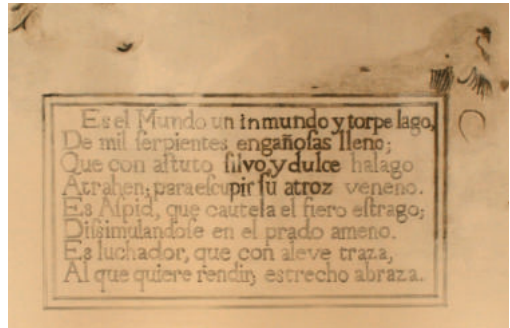 Es el Mundo un inmundo y torpe lago,
De mil ſerpientes engañoſas lleno;
Que con aſtuto ſilvo, y dulce halago
Atrahen; para eſcupir ſu atroz veneno.
Es Aſpid, que cautela el fiero eſtrago;
Diſsimulandoſe en el prado ameno.
Es luchador, que con aleve traza,
Al que quiere rendir, estrecho abraza.